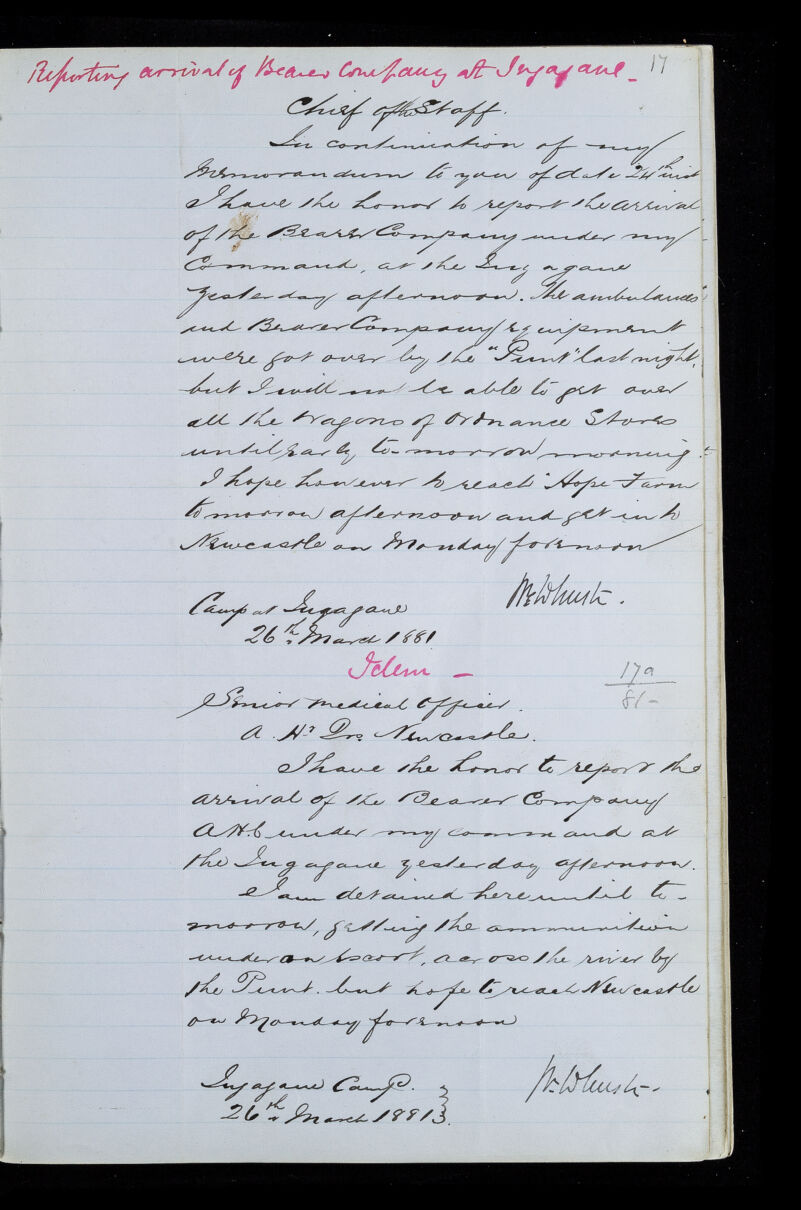 Reporting arrival of Bearer Company at Ingagane -
17
Chief of the Staff.
In continuation of my
Memorandum to you of date 24th inst
I have the honor to report the arrival
of the Bearer Company under my
Command, at the Ingagane
yesterday afternoon. The ambulances
and Bearer Company Equipment
were got over by the "Punt" last night,
but I will not be able to get over
all the wagons of Ordnance Stores
until early to-morrow morning.
I hope however to reach Hope Farm
tomorrow afternoon and get in to
Newcastle on Monday forenoon
Camp at Ingagane
26th March 1881
Idem -
17a
81-
Senior Medical Officer.
A. Hd Qrs Newcastle.
I have the honor to report the
arrival of the Bearer Company
A.H.C under my command at
the Ingagane yesterday afternoon.
I am detained here until to-
morrow, getting the ammunition
under an Escort, across the river by
the Punt. but hope to reach Newcastle
on Monday forenoon
Ingagane Camp.
26th March 1881